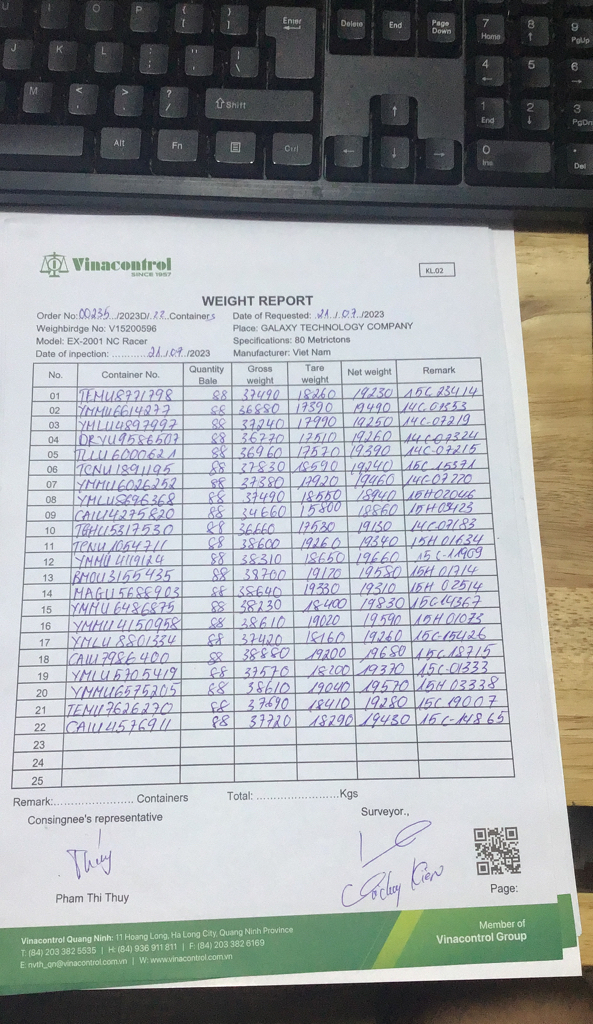 Enter
Delete
End
Page Down
7 Home
8 ↑
9 PgUp
U
I
O
P
{ [
} ]
| \
4 ←
5
6 →
J
K
L
: ;
" '
⇧Shift
↑
1 End
2 ↓
3 PgDn
M
< ,
> .
? /
Alt
Fn
Ctrl
←
↓
→
0 Ins
. Del
Vinacontrol
SINCE 1957
KL.02
WEIGHT REPORT
Order No:00235../2023D/.22.Containers Date of Requested: .21../.07../2023
Weighbirdge No: V15200596 Place: GALAXY TECHNOLOGY COMPANY
Model: EX-2001 NC Racer Specifications: 80 Metrictons
Date of inpection: .....21./07../2023 Manufacturer: Viet Nam
No. Container No. Quantity Bale Gross weight Tare weight Net weight Remark
01 TEMU8771798 88 37490 18260 19230 15C 23414
02 YMMU6614277 88 36880 17390 19490 14C-01553
03 YMLU4897997 88 37240 17990 19250 14C-07219
04 DRYU9586507 88 36770 17510 19260 14C-02324
05 TLLU6000621 88 36960 17570 19390 14C-07215
06 TCNU1891195 88 37830 18590 19240 15C 15371
07 YMMU6026252 88 37380 17920 19460 14C-07220
08 YMLU8696368 88 37490 18550 18940 15H02046
09 CAIU4275820 88 34660 15800 18860 15H09423
10 TGHU5317530 88 36660 17530 19130 14C-07183
11 TCNU1054711 88 38600 19260 19340 15H 01634
12 YMMU4119124 88 38310 18650 19660 15C-11909
13 BMOU3155435 88 38700 19120 19580 15H 01714
14 MAGU5688903 88 38640 19330 19310 15H 02514
15 YMMU6486875 88 38230 18400 19830 15C14367
16 YMMU4150958 88 38610 19020 19590 15H 01073
17 YMLU8801334 88 37420 18160 19260 15C15426
18 CAIU7986400 88 38880 19200 19680 15C18715
19 YMLU5705419 88 37570 18200 19370 15C-01333
20 YMMU6575205 88 38610 19040 19570 15H 03338
21 TEMU7626270 88 37690 18410 19280 15C 19007
22 CAIU4576911 88 37720 18290 19430 15C-14865
23
24
25
Remark:...................... Containers Total: .......................Kgs
Consingnee's representative Surveyor.,
Thúy
Pham Thi Thuy
Page:
Vinacontrol Quang Ninh: 11 Hoang Long, Ha Long City, Quang Ninh Province
T: (84) 203 382 5535 | H: (84) 936 911 811 | F: (84) 203 382 6169
E: nvth_qn@vinacontrol.com.vn | W: www.vinacontrol.com.vn
Member of
Vinacontrol Group